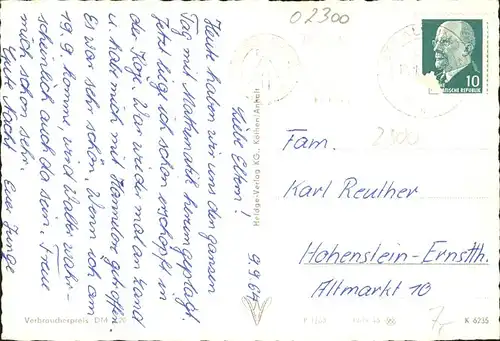 02300
9.9.64
Liebe Eltern!
Heute haben wir uns den ganzen
Tag mit Mathematik herumgeplagt.
Jetzt lieg ich schon erschöpft in
der Koje. War wieder mal an Land
u. habe mich mit Hannelore getroffen.
Es war sehr schön. Wenn ich am
19.9. komme, wird Walter wahr-
scheinlich auch da sein. Freue
mich schon sehr.
Gute Nacht Euer Junge
Heldge-Verlag KG., Köthen/Anhalt
10
DEUTSCHE DEMOKRATISCHE REPUBLIK
2300
Fam.
Karl Reuther
Hohenstein-Ernstth.
Altmarkt 10
Verbraucherpreis DM
7,-
K 6235